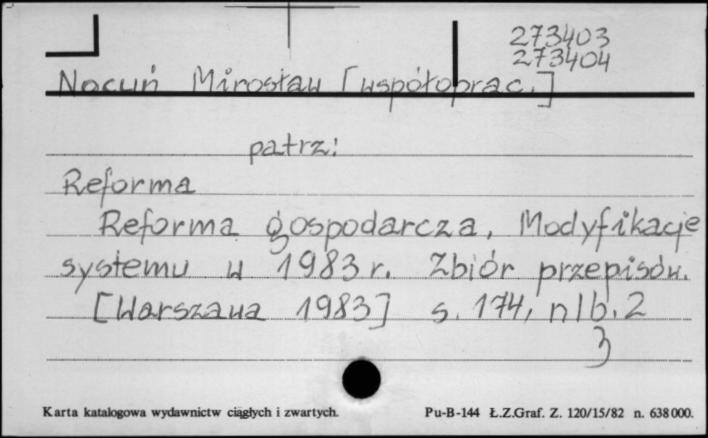 273403
273404
Nocuń Mirosław [współoprac.]
patrz:
Reforma
Reforma gospodarcza, Modyfikacje
systemu w 1983 r. Zbiór przepisów.
[Warszawa 1983] s. 174, nlb. 2
3
Karta katalogowa wydawnictw ciągłych i zwartych. Pu-B-144 Ł.Z.Graf. Z. 120/15/82 n. 638000.